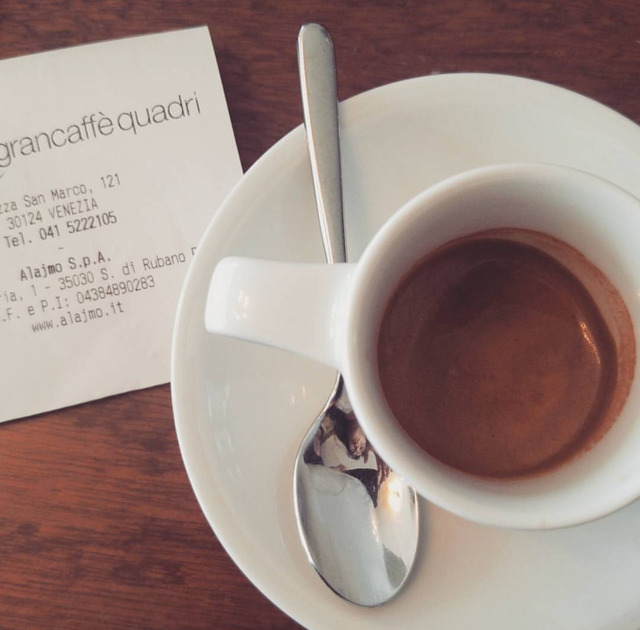 grancaffè quadri
zza San Marco, 121
30124 VENEZIA
Tel. 041 5222105
-
Alajmo S.p.A.
ria, 1 - 35030 S. di Rubano
.F. e P.I: 04384890283
www.alajmo.it